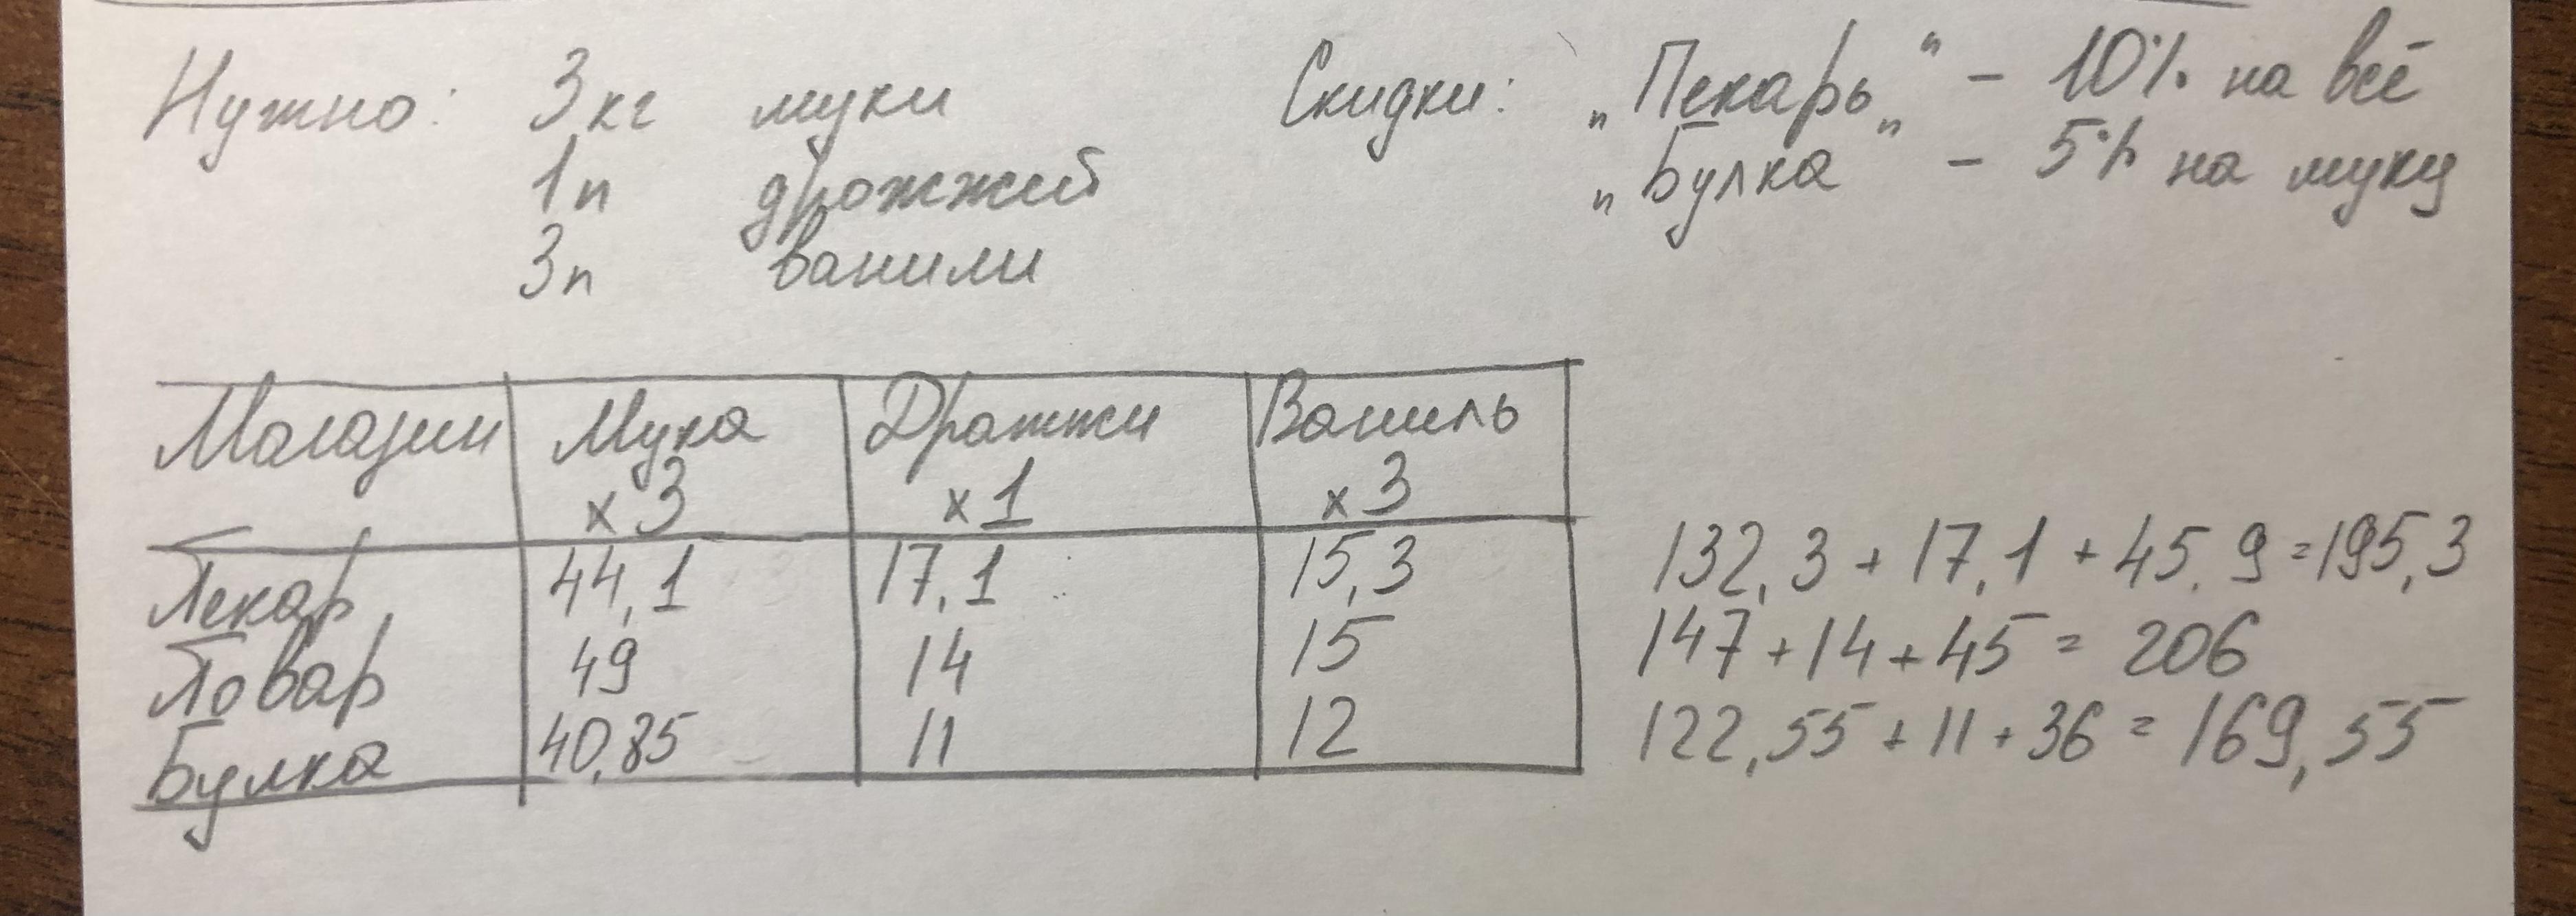 Нужно: 3кг муки Скидки: „Пекарь" – 10% на всё
1п дрожжей „Булка" – 5% на муку
3п ванили
Магазин Мука Дрожжи Ваниль
х 3 х 1 х 3
Пекар 44,1 17,1 15,3 132,3 + 17,1 + 45,9 = 195,3
Повар 49 14 15 147 + 14 + 45 = 206
Булка 40,85 11 12 122,55 + 11 + 36 = 169,55